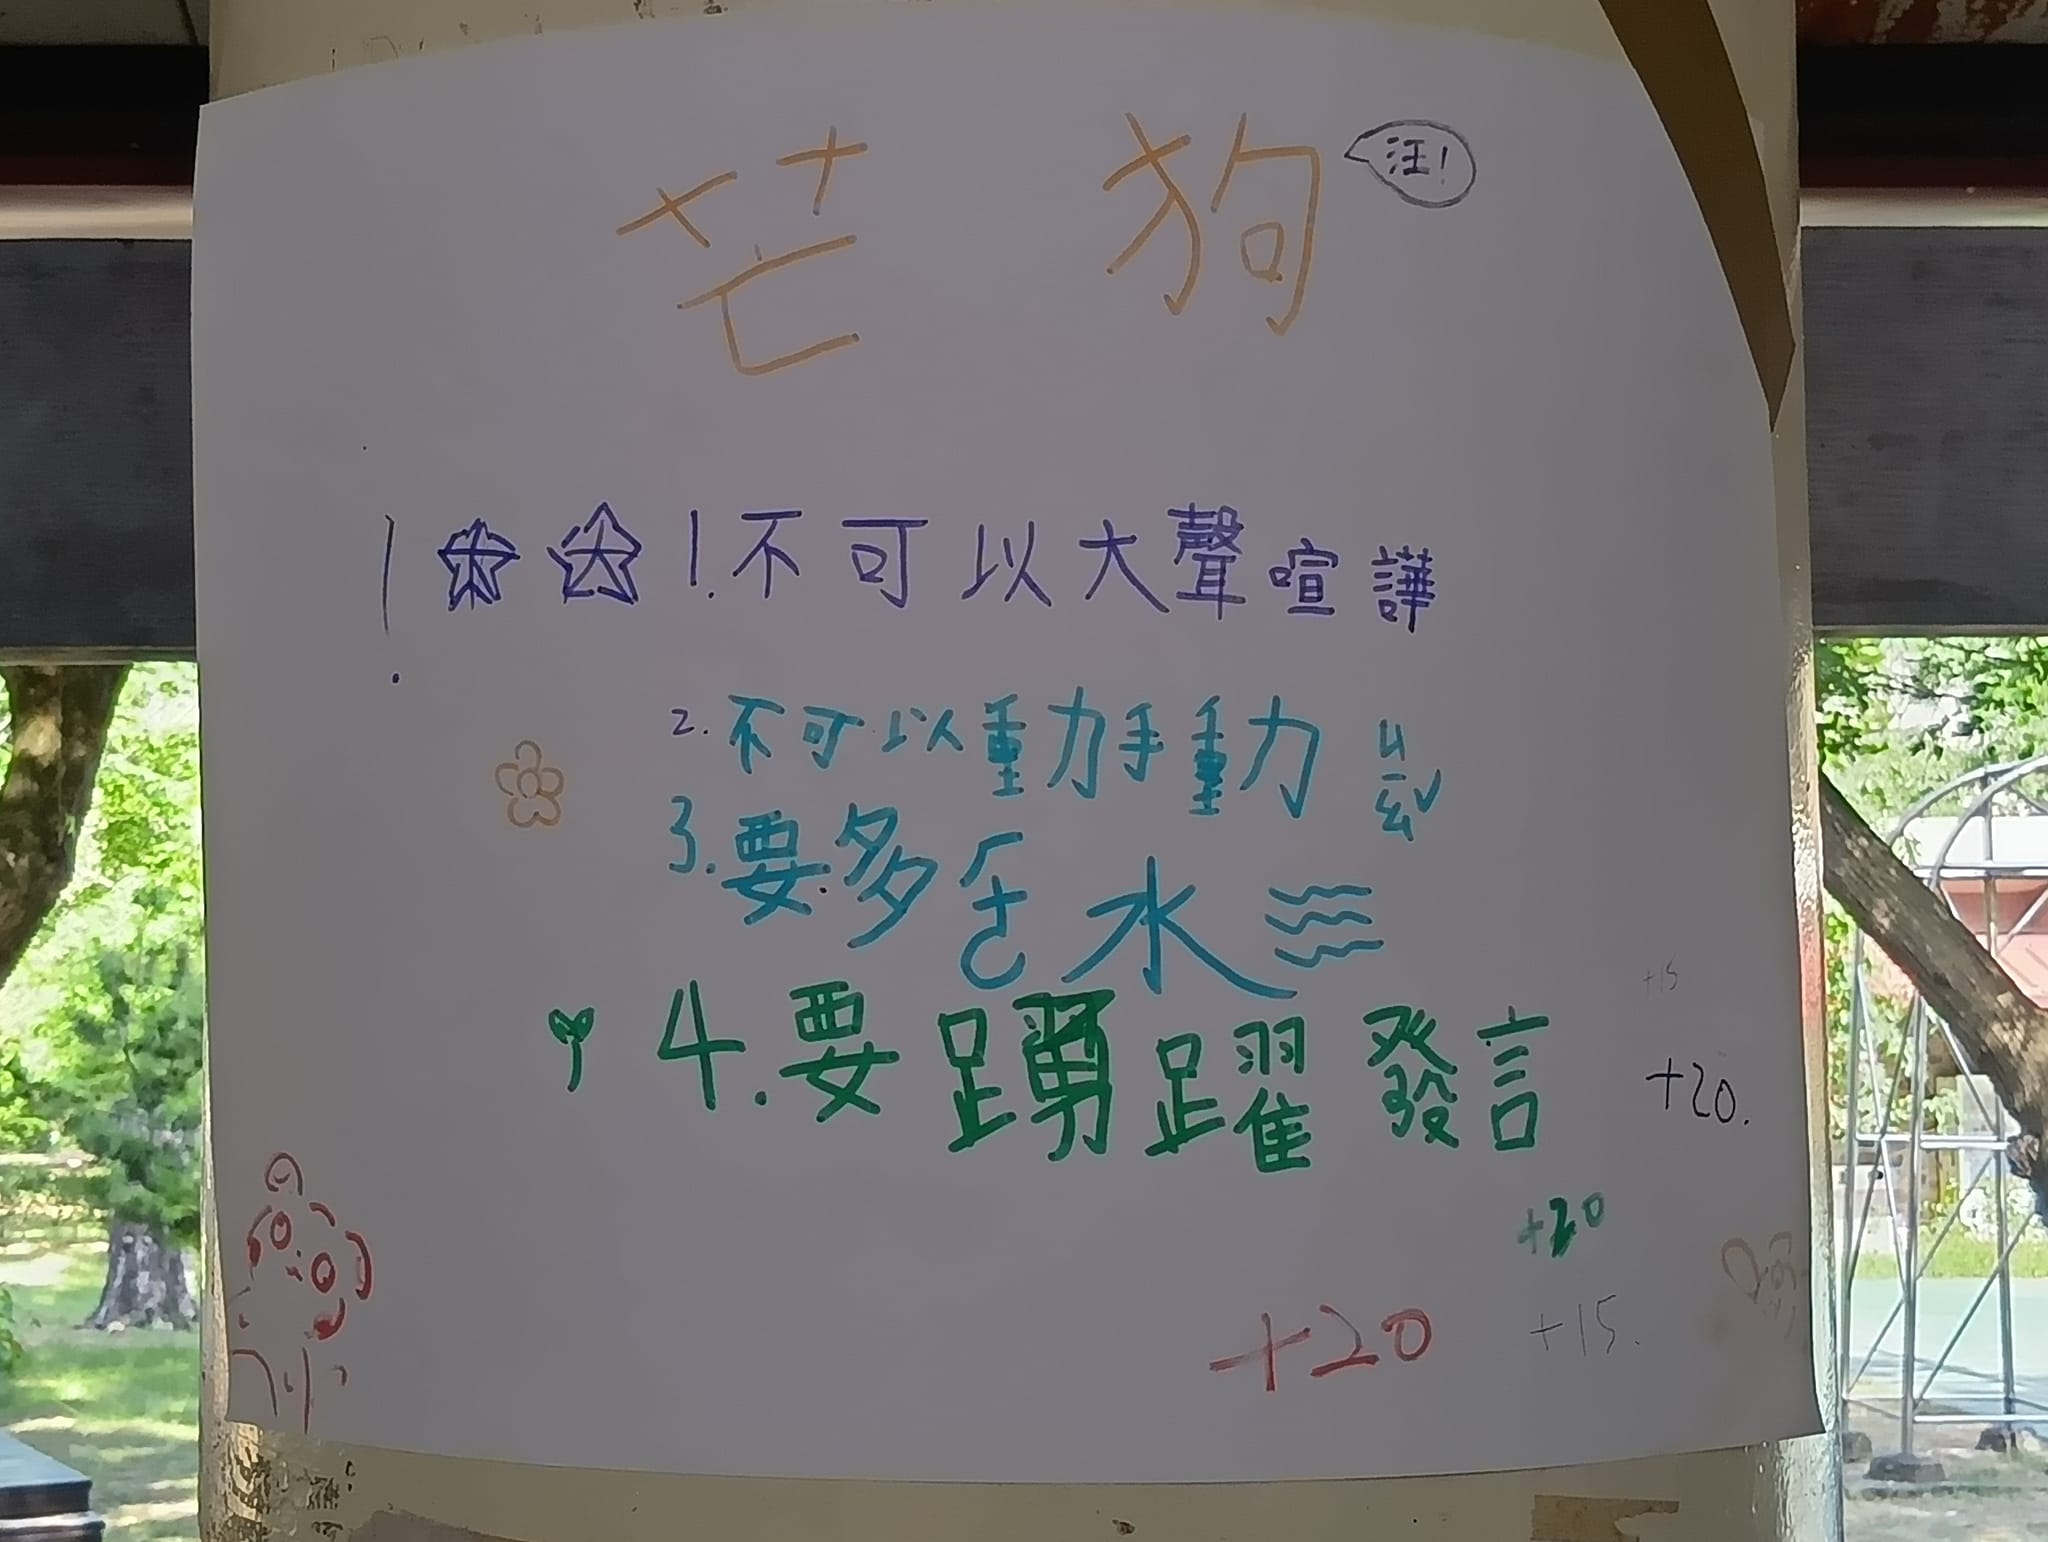 芒狗 汪!
1.不可以大聲喧譁
2.不可以動手動ㄐㄧㄠˇ
3.要多ㄏㄜ水
4.要踴躍發言
+15
+20.
+20
+20 +15.